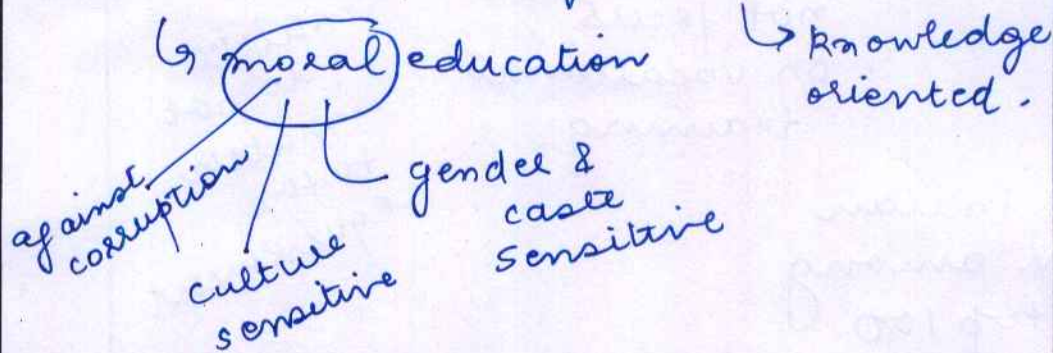 ↳ moral education
↳ knowledge
oriented.
against
corruption
culture
sensitive
gender &
caste
sensitive